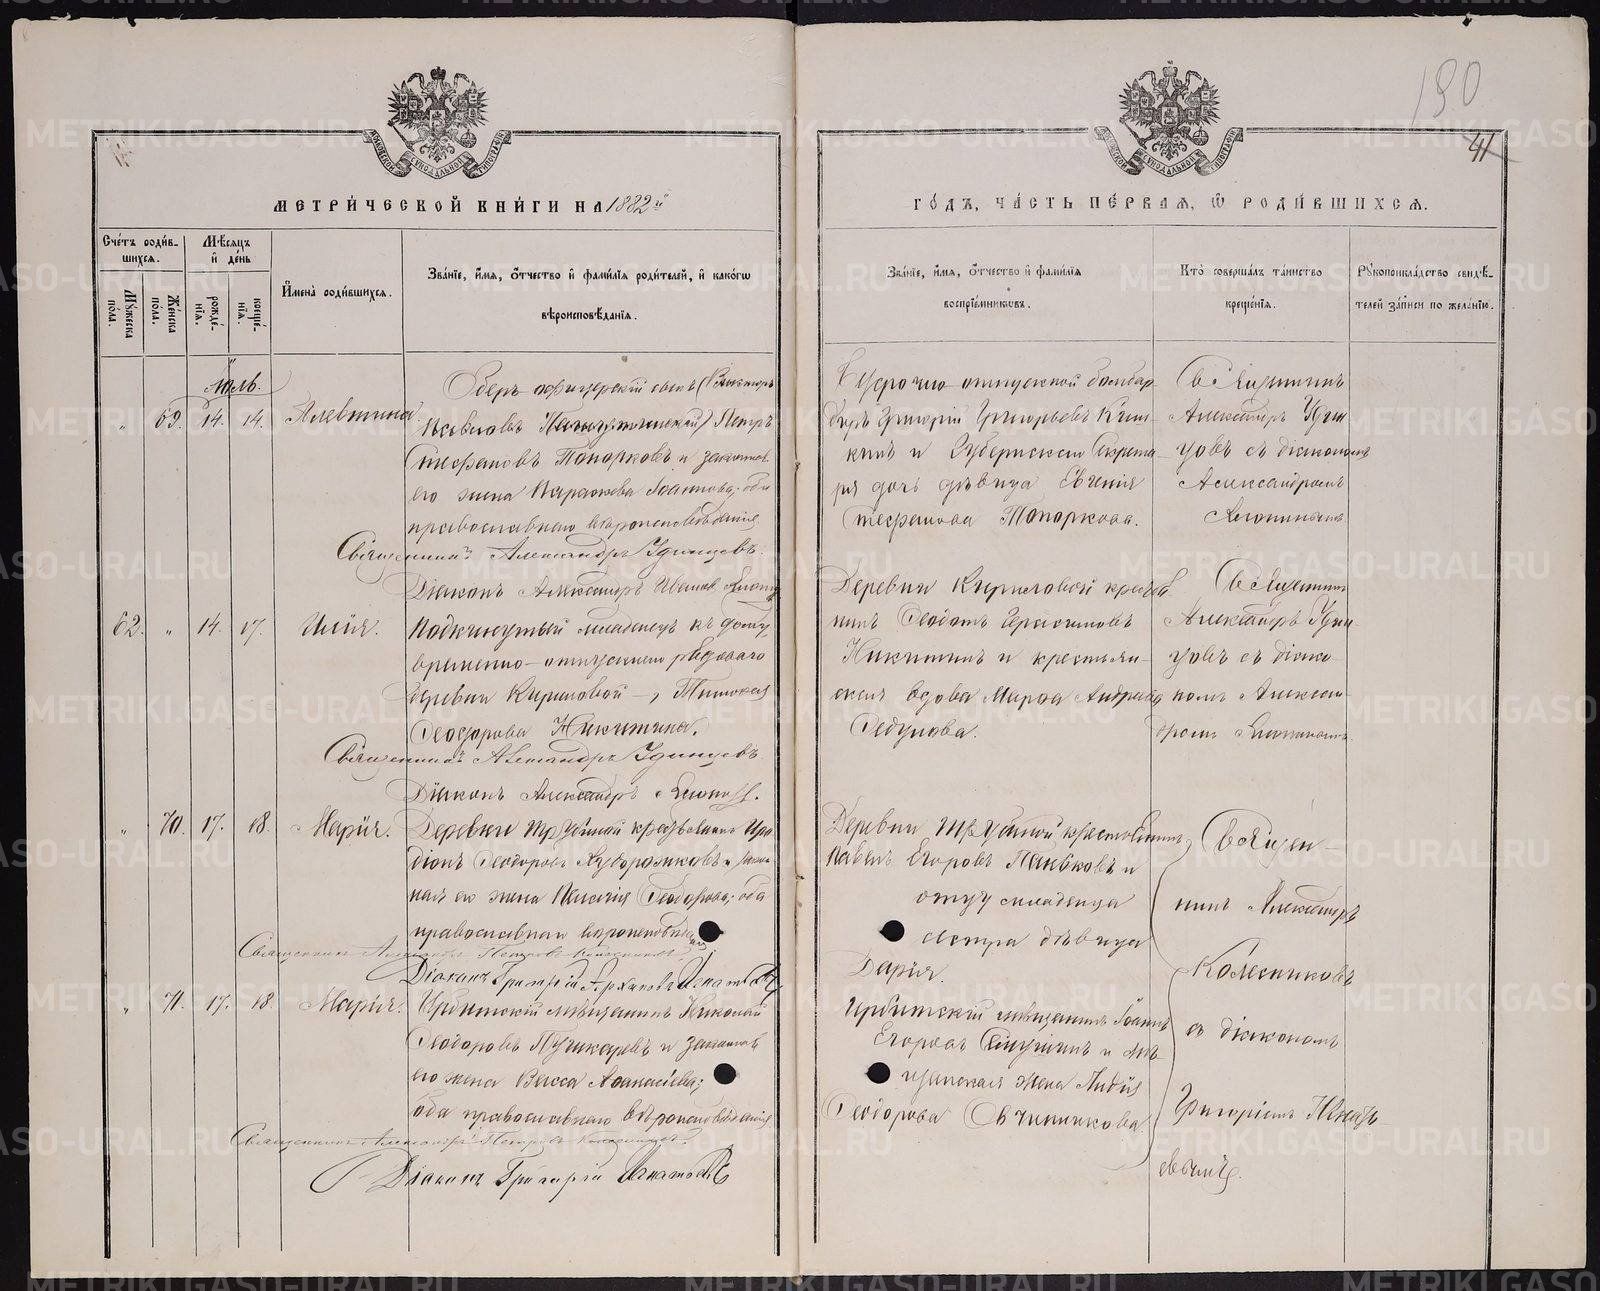 190
41
МЕТРИЧЕСКОЙ КНИГИ НА 1882й
ГОДЪ, ЧАСТЬ ПЕРВАЯ, Ѡ РОДИВШИХСЯ.
Счетъ родив-
шихся.
Мужеска пола.
Женска пола.
Мѣсяцъ и день
рожде-
нія.
креще-
нія.
Имена родившихся.
Званіе, имя, отчество и фамилія родителей, и какогѡ
вѣроисповѣданія.
Званіе, имя, отчество и фамилія
воспріемниковъ.
Кто совершалъ таинство
крещенія.
Рукоприкладство свидѣ-
телей записи по желанію.
Іюль.
„ 69. 14. 14. Алевтина
Оберъ офицерскій сынъ (
Петръ
Стефановъ Топорковъ и законная
его жена Параскева Іоаннова; оба
православнаго вѣроисповѣданія
Священникъ Александръ Удинцевъ.
Діаконъ Александръ
отпускной бомбар-
диръ Григорій Григорьевъ
и Губернскаго Секрета-
ря дочь дѣвица Евгенія
Стефанова Топоркова.
Священникъ
Александръ Удин-
цовъ съ діакономъ
Александромъ
62. „ 14. 17. Илія.
Подкинутый младенецъ къ дому
временно-отпускнаго рядоваго
деревни Кириловой
Ѳеодорова Никитина.
Священникъ Александръ Удинцевъ
Діаконъ Александръ
Деревни Кириловой кресть
нинъ Ѳеодотъ Герасимовъ
Никитинъ и крестьян-
ская вдова Марѳа Андреева
Ѳедулова.
Священникъ
Александръ Удин-
цовъ съ діако-
номъ Алексан-
дромъ
„ 70. 17. 18. Марія.
Деревни крестьянинъ Иро-
діонъ Ѳеодоровъ и закон-
ная его жена Ѳеодорова; оба
православнаго вѣроисповѣданія
Священникъ Александръ Петровъ Колесниковъ
Діаконъ Григорій
Деревни крестьянинъ
Павелъ Егоровъ и
отцу младенца
сестра дѣвица
Дарія.
Священ-
никъ Александръ
Колесниковъ
съ діакономъ
Григоріемъ Игнать-
евымъ.
„ 71. 17. 18. Марія.
Ирбитскій мѣщанинъ Николай
Ѳеодоровъ Пушкаревъ и законная
его жена Васса Аѳанасіева;
оба православнаго вѣроисповѣданія
Священникъ Александръ Петровъ Колесниковъ
Діаконъ Григорій Игнатьевъ
Ирбитскій мѣщанинъ Іоаннъ
Егоровъ и мѣ-
щанская жена Лидія
Ѳеодорова Овчинникова